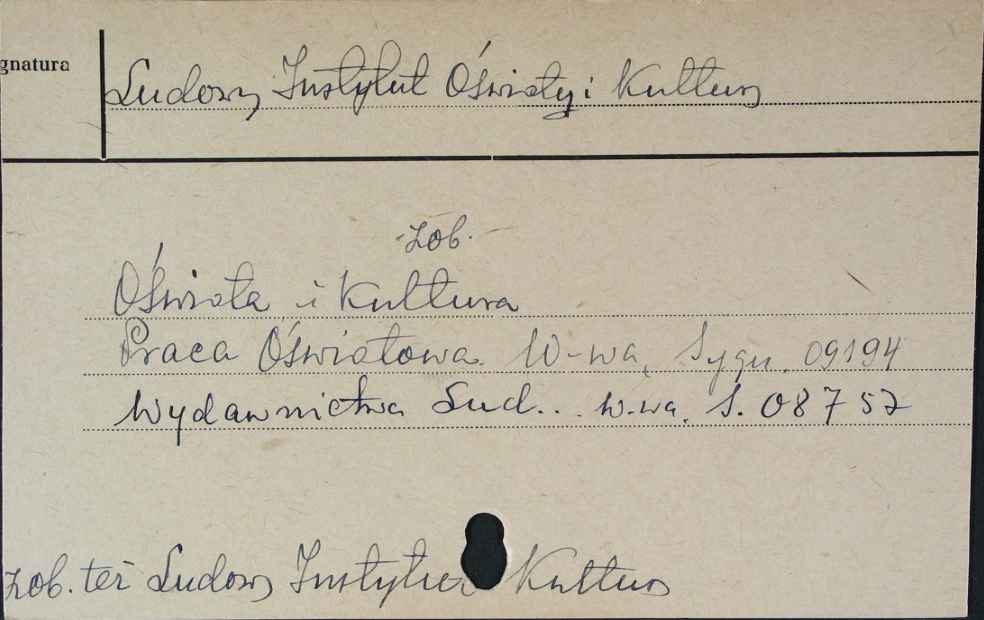 gnatura
Ludowy Instytut Oświaty i Kultury
- zob. -
Oświata i Kultura
Praca Oświatowa. W-wa, Sygn. 09194
Wydawnictwa Lud... W-wa, S. 08757
zob. też Ludowy Instytut Kultury